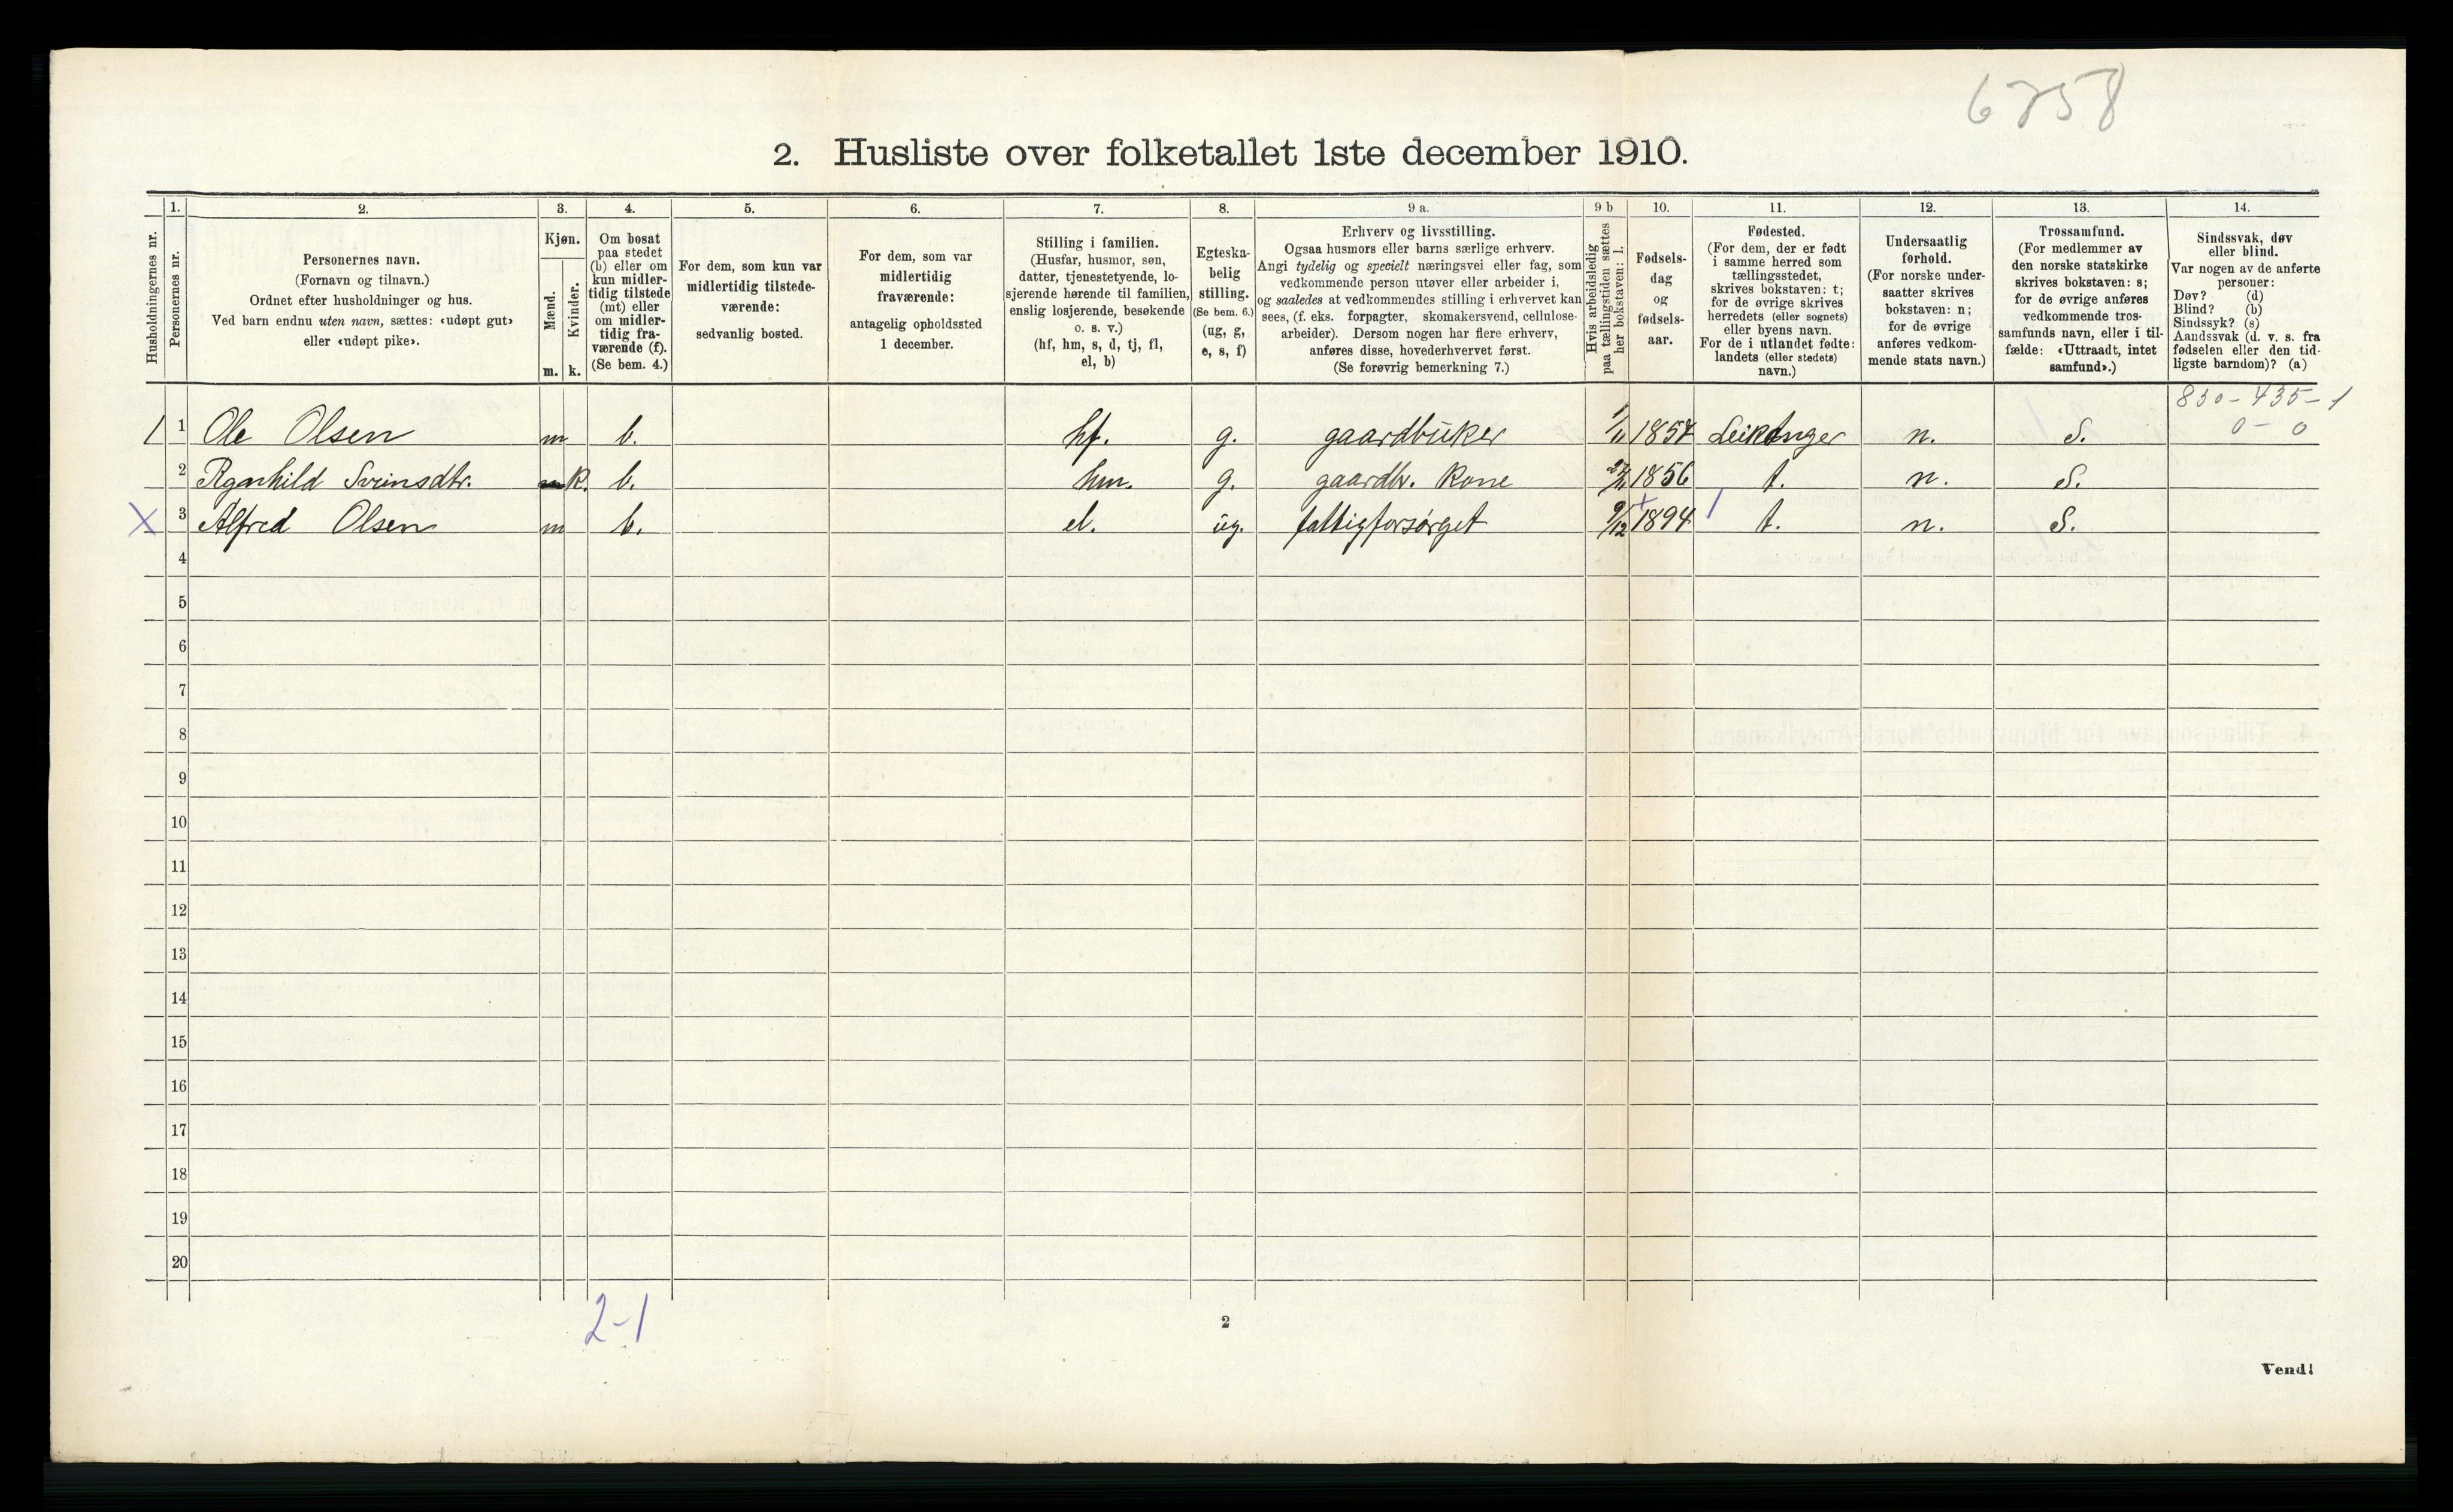 6758
2. Husliste over folketallet 1ste december 1910.
1. 2. 3. 4. 5. 6. 7. 8. 9 a. 9 b 10. 11. 12. 13. 14.
Husholdningernes nr.
Personernes nr.
Personernes navn.
(Fornavn og tilnavn.)
Ordnet efter husholdninger og hus.
Ved barn endnu uten navn, sættes: «udøpt gut»
eller «udøpt pike».
Kjøn.
Mænd.
Kvinder.
m. k.
Om bosat
paa stedet
(b) eller om
kun midler-
tidig tilstede
(mt) eller
om midler-
tidig fra-
værende (f).
(Se bem. 4.)
For dem, som kun var
midlertidig tilstede-
værende:
sedvanlig bosted.
For dem, som var
midlertidig
fraværende:
antagelig opholdssted
1 december.
Stilling i familien.
(Husfar, husmor, søn,
datter, tjenestetyende, lo-
sjerende hørende til familien,
enslig losjerende, besøkende
o. s. v.)
(hf, hm, s, d, tj, fl,
el, b)
Egteska-
belig
stilling.
(Se bem. 6.)
(ug, g,
e, s, f)
Erhverv og livsstilling.
Ogsaa husmors eller barns særlige erhverv.
Angi tydelig og specielt næringsvei eller fag, som
vedkommende person utøver eller arbeider i,
og saaledes at vedkommendes stilling i erhvervet kan
sees, (f. eks. forpagter, skomakersvend, cellulose-
arbeider). Dersom nogen har flere erhverv,
anføres disse, hovederhvervet først.
(Se forøvrig bemerkning 7.)
Hvis arbeidsledig
paa tællingstiden sættes
her bokstaven: l.
Fødsels-
dag
og
fødsels-
aar.
Fødested.
(For dem, der er født
i samme herred som
tællingsstedet,
skrives bokstaven: t;
for de øvrige skrives
herredets (eller sognets)
eller byens navn.
For de i utlandet fødte:
landets (eller stedets)
navn.)
Undersaatlig
forhold.
(For norske under-
saatter skrives
bokstaven: n;
for de øvrige
anføres vedkom-
mende stats navn.)
Trossamfund.
(For medlemmer av
den norske statskirke
skrives bokstaven: s;
for de øvrige anføres
vedkommende tros-
samfunds navn, eller i til-
fælde: «Uttraadt, intet
samfund».)
Sindssvak, døv
eller blind.
Var nogen av de anførte
personer:
Døv? (d)
Blind? (b)
Sindssyk? (s)
Aandssvak (d. v. s. fra
fødselen eller den tid-
ligste barndom)? (a)
830-435-1
0-0
1 1 Ole Olsen m b. hf. g. gaardbruker 1/11 Leikanger n. S.
2 Rgnhild Sveinsdtr. k. b. hm. g. gaardbr. kone 1856 t. n. S.
X 3 Alfred Olsen m b. el. ug. fattigforsørget 9/12 1894 t. n. S.
4
5
6
7
8
9
10
11
12
13
14
15
16
17
18
19
20
2-1
2
Vend!